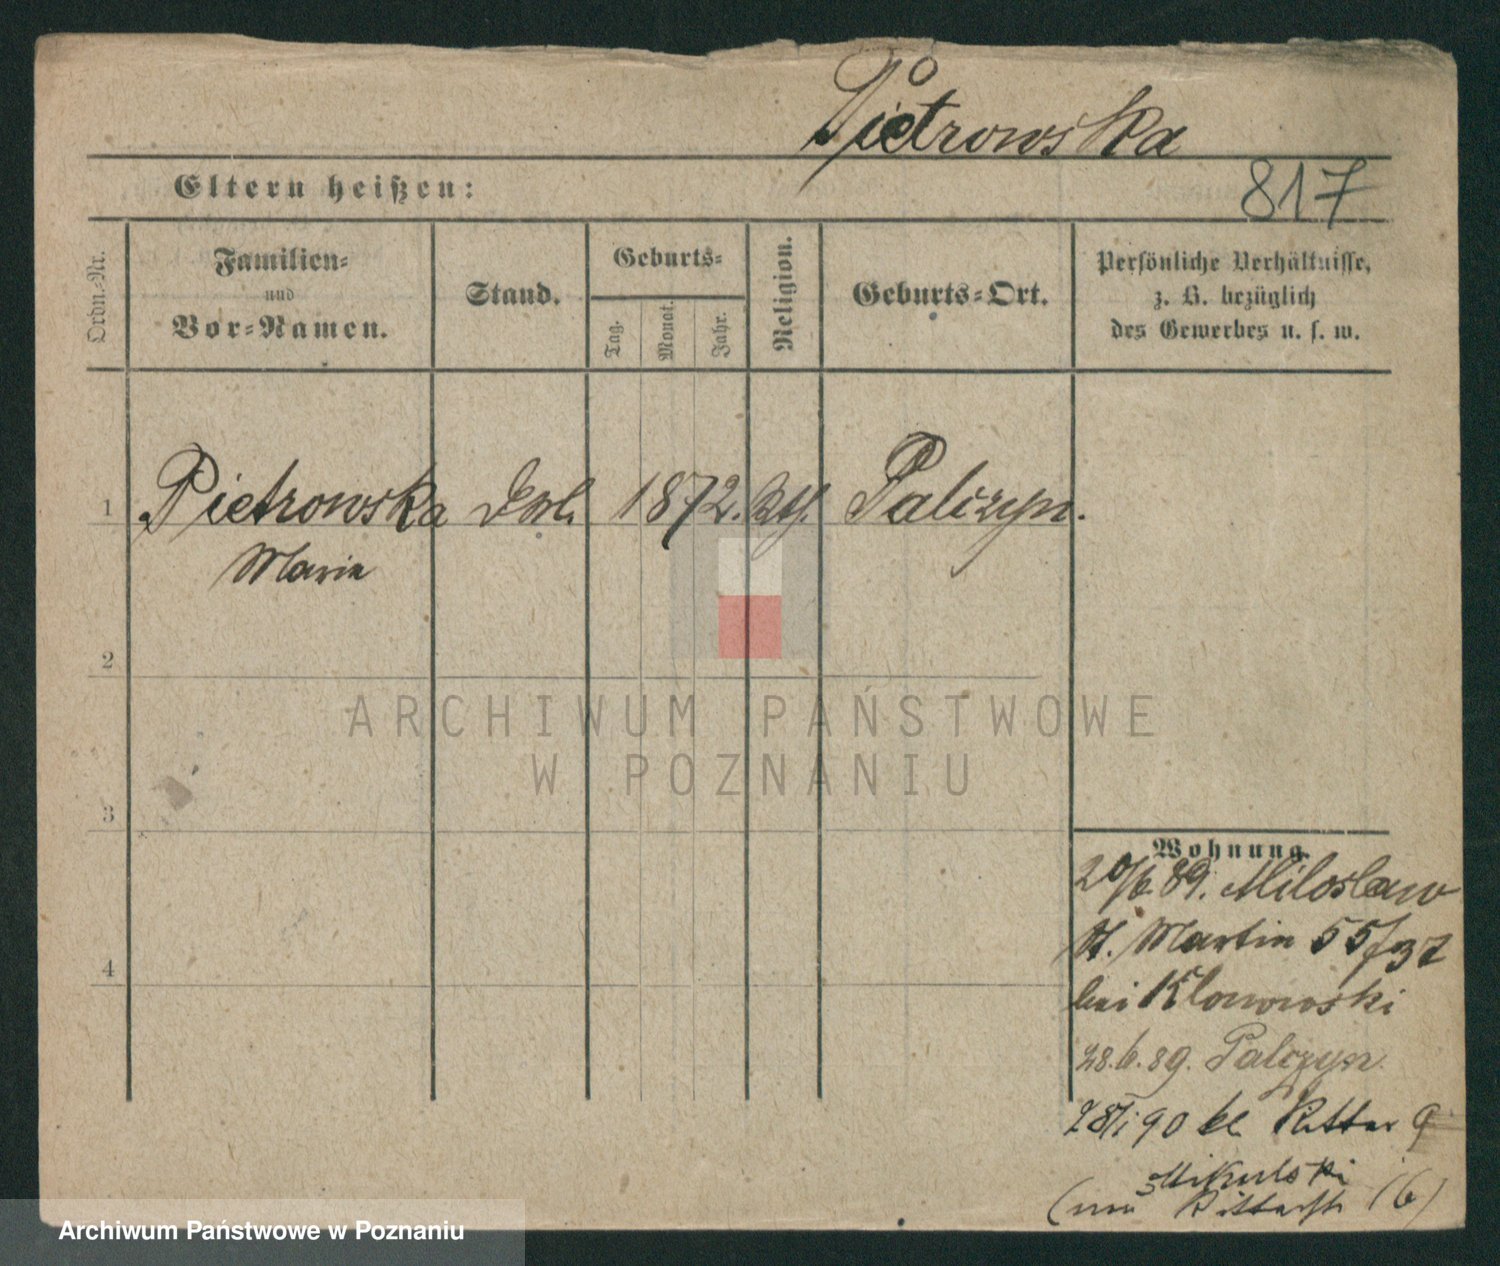 Pietrowska
Eltern heißen:
817
Ordn.-Nr.
Familien-
und
Vor-Namen.
Stand.
Geburts-
Tag.
Monat.
Jahr.
Religion.
Geburts-Ort.
Persönliche Verhältnisse,
z. B. bezüglich
des Gewerbes u. s. w.
1 Pietrowska 1872. kth. Palczyn.
Marie
2
3
4
ARCHIWUM PAŃSTWOWE
W POZNANIU
Wohnung.
20/6.89. Miloslaw
St. Martin 55/37
bei Klonowski
28.6.89. Palczyn
90 kl Ritter 9
Mikulski
(Ritterstr 16)
Archiwum Państwowe w Poznaniu